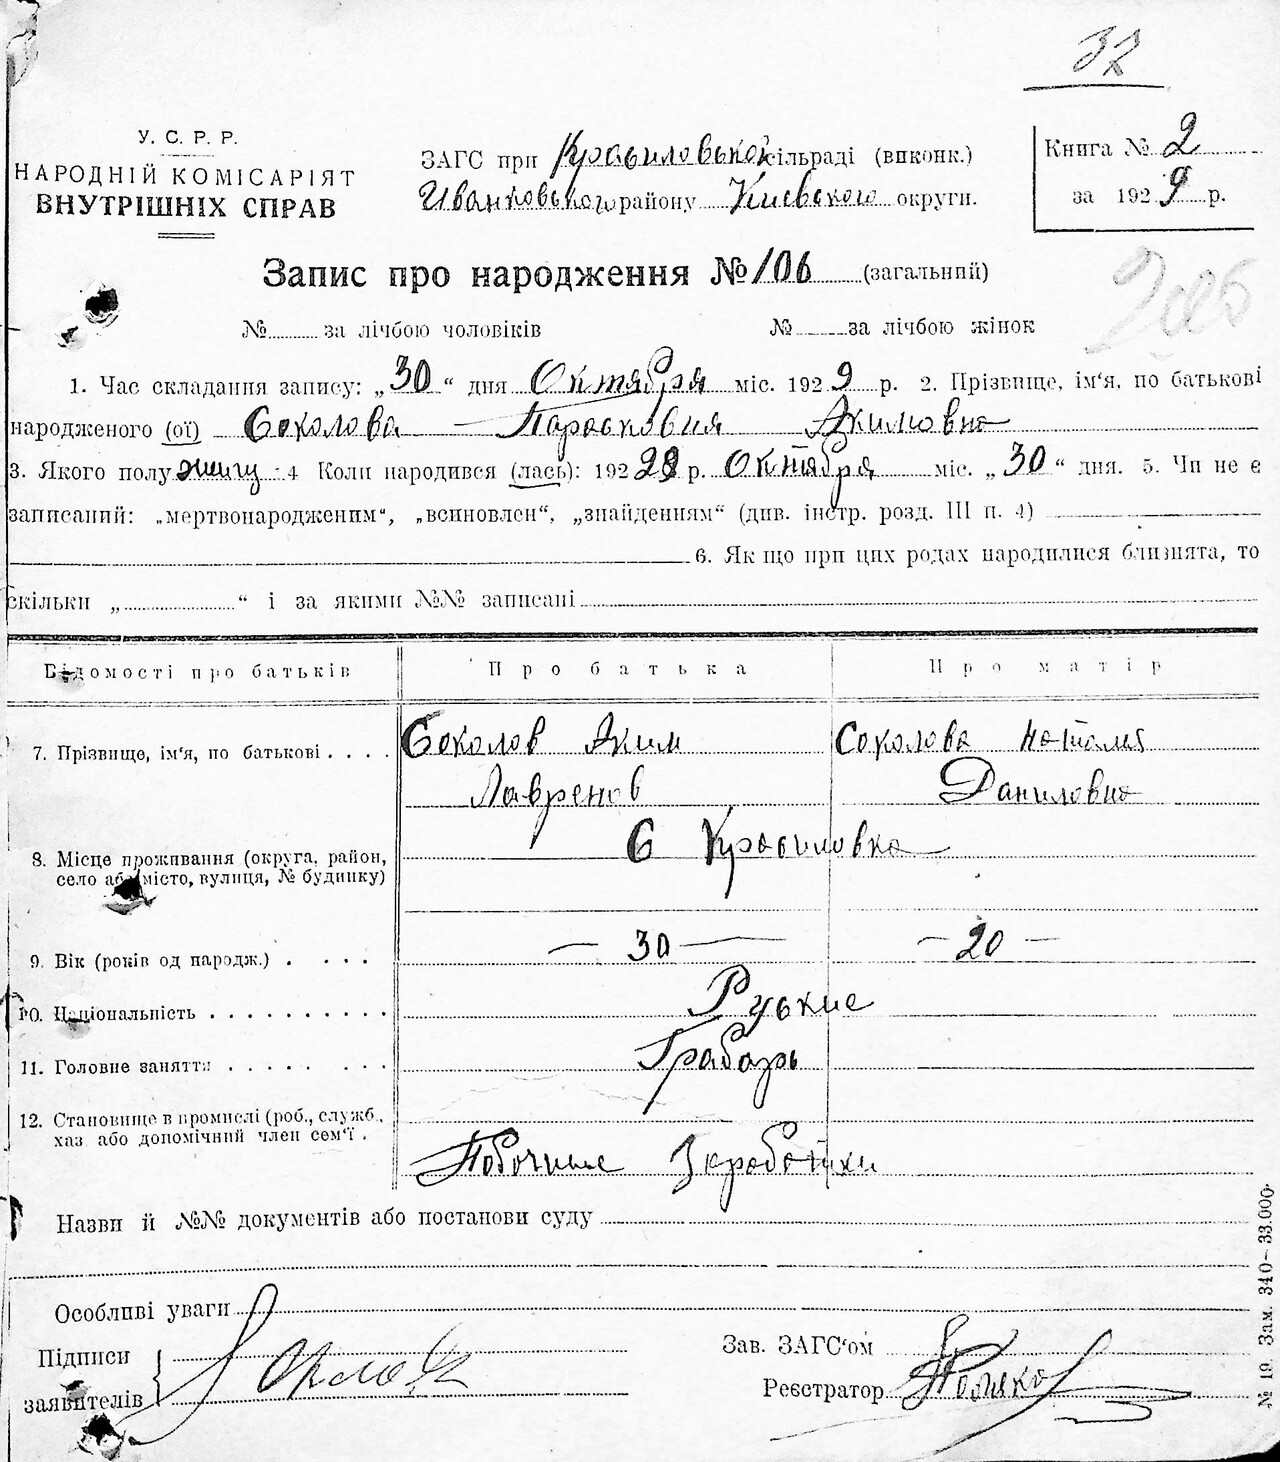 32
У. С. Р. Р.
НАРОДНІЙ КОМІСАРІЯТ
ВНУТРІШНІХ СПРАВ
ЗАГС при Красиловской сільраді (виконк.)
Иванковського району Киевского округи.
Книга № 2
за 1929 р.
Запис про народження № 106 (загальний)
№ за лічбою чоловіків № за лічбою жінок
1. Час складання запису: „30“ дня Октября міс. 1929 р. 2. Прізвище, ім‘я, по батькові
народженого (ої) Соколова Парасковия Акимовна
3. Якого полу жінч 4 Коли народився (лась): 192 29 р. Октября міс. „30“ дня. 5. Чи не є
записаний: „мертвонародженим“, „всиновлен“, „знайденням“ (див. інстр. розд. III п. 4)
6. Як що при цих родах народилися близнята, то
скільки „ “ і за якими №№ записані
Відомості про батьків Про батька Про матір
7. Прізвище, ім‘я, по батькові . . . . Соколов Аким Соколова Наталия
Лавренов Даниловна
8. Місце проживання (округа, район, село або місто, вулиця, № будинку) С Красиловка
9. Вік (років од народж.) . . . . — 30 — — 20 —
10. Національність . . . . . . . . . . Руские
11. Головне заняття . . . . . . . . Грабарь
12. Становище в промислі (роб., служб.,
хаз або допомічний член сем‘ї . Побочные Заработки
Назви й №№ документів або постанови суду
Особливі уваги
Підписи
заявителів
Зав. ЗАГС‘ом
Реєстратор
№ 19. Зам. 340—33.000.